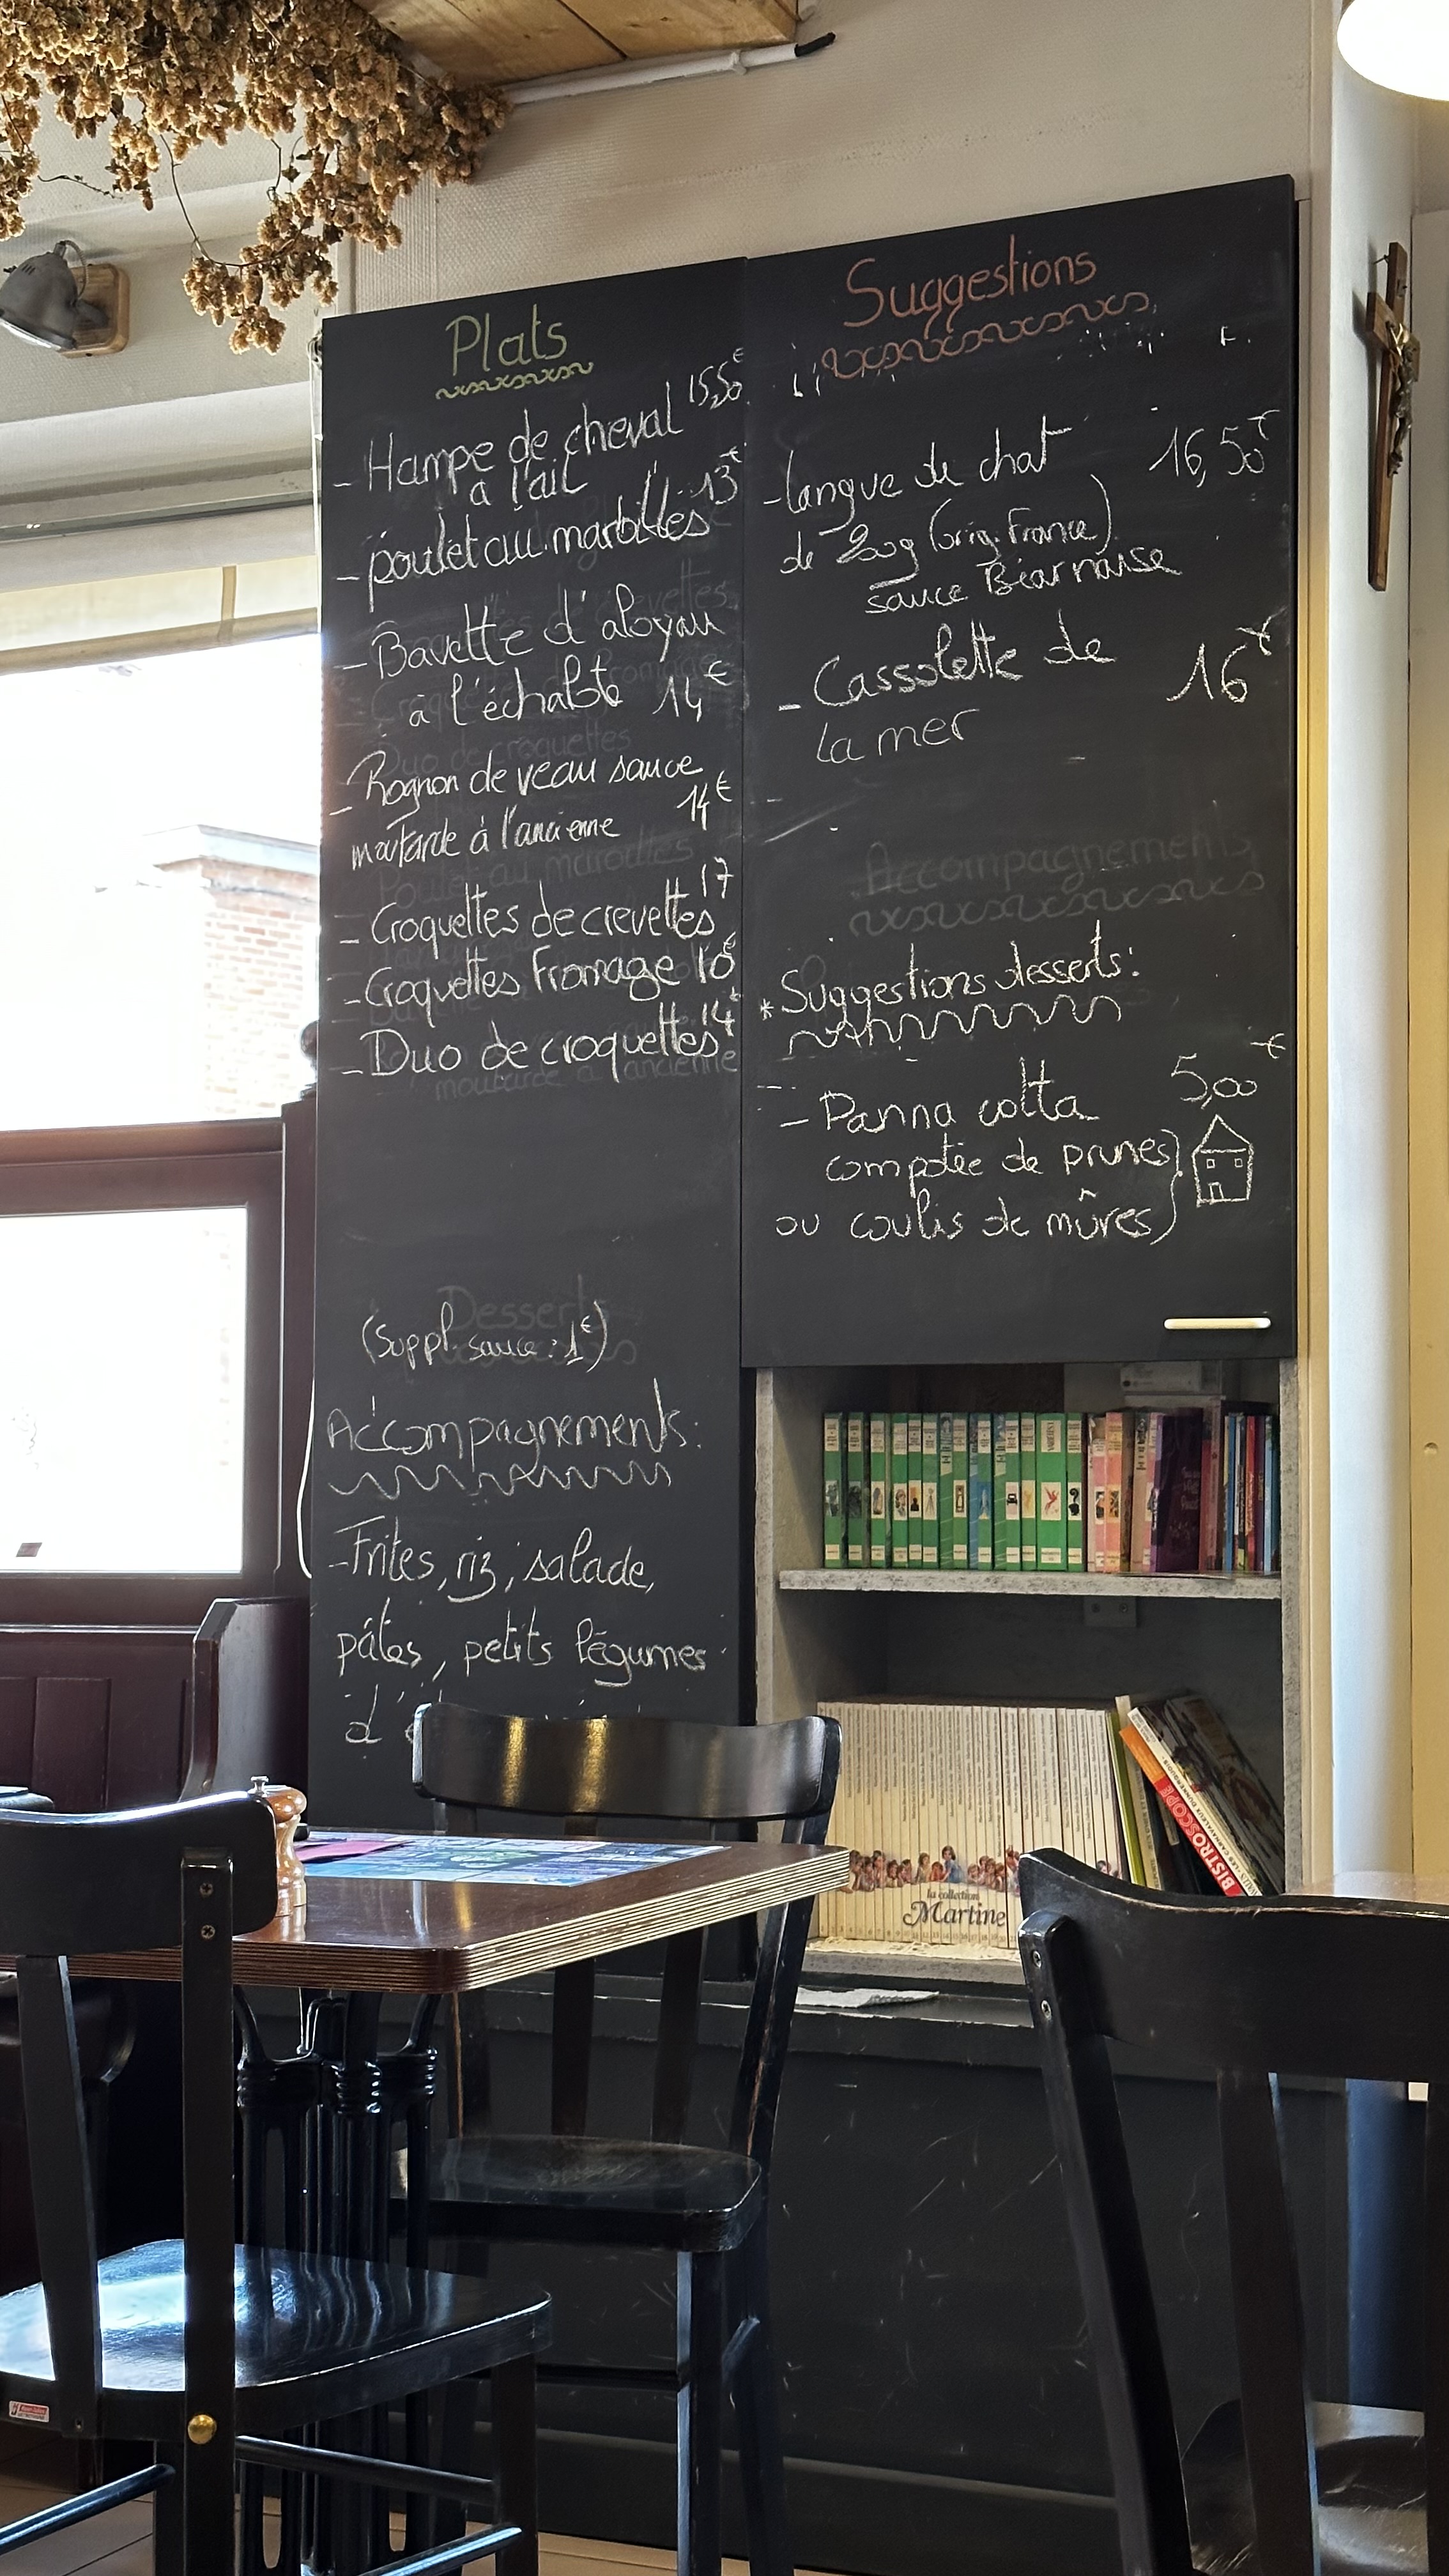 Plats
- Hampe de cheval 15,50€
à l'ail
- poulet au maroilles 13€
- Bavette d'aloyau
à l'échalote 14€
- Rognon de veau sauce
moutarde à l'ancienne 14€
- Croquettes de crevettes 17
- Croquettes Fromage 10€
- Duo de croquettes 14€
(Suppl. sauce : 1€)
Accompagnements :
- Frites, riz, salade,
pâtes, petits légumes
Suggestions
- langue de chat 16,50€
de 200g (orig. France)
sauce Béarnaise
- Cassolette de 16€
la mer
Accompagnements
* Suggestions desserts :
- Panna cotta 5,00€
compotée de prunes)
ou coulis de mûres)
Desserts
la collection
Martine
BISTROSCOPE